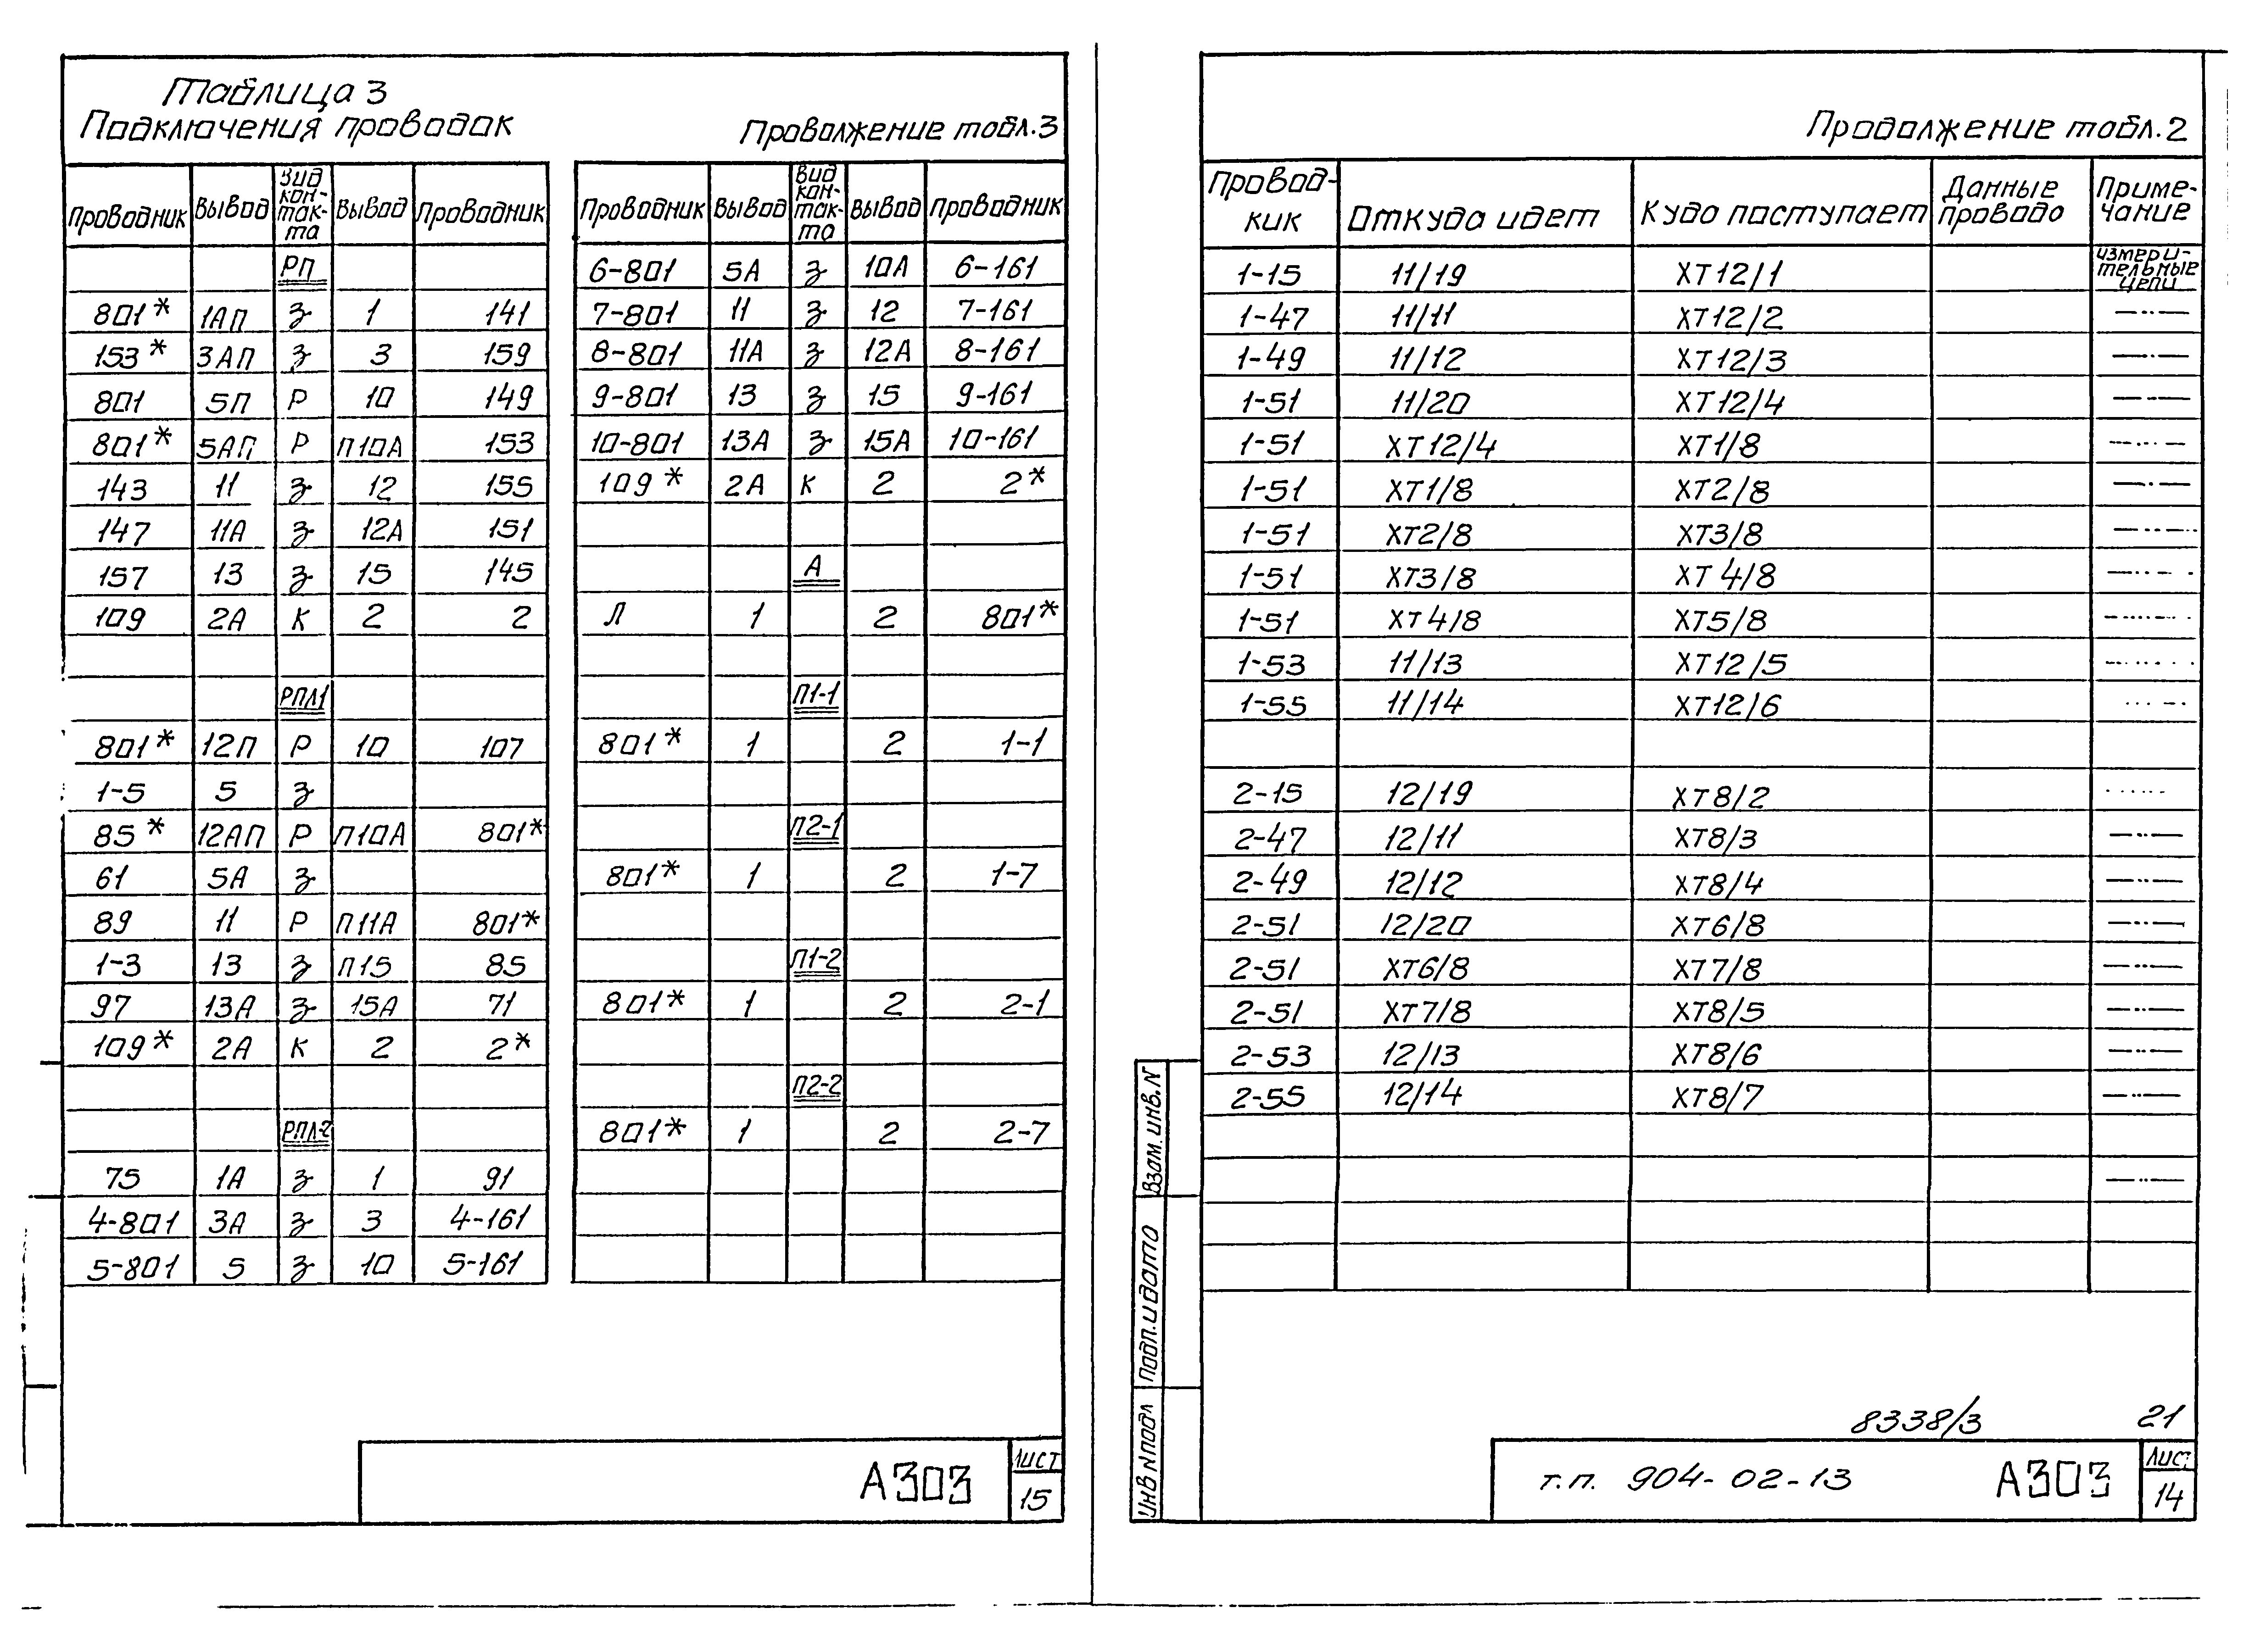 Таблица 3
Подключения проводок
Продолжение табл. 3
Проводник Вывод Вид кон-так-та Вывод Проводник
РП
801* 1АП з 1 141
153* 3АП з 3 159
801 5П Р 10 149
801* 5АП Р П10А 153
143 11 з 12 155
147 11А з 12А 151
157 13 з 15 145
109 2А К 2 2
РПЛ1
801* 12П Р 10 107
1-5 5 з
85* 12АП Р П10А 801*
61 5А з
89 11 Р П11А 801*
1-3 13 з П15 85
97 13А з 15А 71
109* 2А К 2 2*
РПЛ-2
75 1А з 1 91
4-801 3А з 3 4-161
5-801 5 з 10 5-161
Проводник Вывод Вид кон-так-та Вывод Проводник
6-801 5А з 10А 6-161
7-801 11 з 12 7-161
8-801 11А з 12А 8-161
9-801 13 з 15 9-161
10-801 13А з 15А 10-161
109* 2А К 2 2*
А
Л 1 2 801*
П1-1
801* 1 2 1-1
П2-1
801* 1 2 1-7
П1-2
801* 1 2 2-1
П2-2
801* 1 2 2-7
А303
Лист
15
Продолжение табл. 2
Провод-кик Откуда идет Куда поступает Данные провада Приме-чание
1-15 11/19 ХТ12/1 измери-тельные цепи
1-47 11/11 ХТ12/2 —··—
1-49 11/12 ХТ12/3 —·—
1-51 11/20 ХТ12/4 —·—
1-51 ХТ12/4 ХТ1/8 —··—
1-51 ХТ1/8 ХТ2/8 —·—
1-51 ХТ2/8 ХТ3/8 —··—
1-51 ХТ3/8 ХТ4/8 —··—
1-51 ХТ4/8 ХТ5/8 —··—
1-53 11/13 ХТ12/5 —··—
1-55 11/14 ХТ12/6 —··—
2-15 12/19 ХТ8/2 —··—
2-47 12/11 ХТ8/3 —··—
2-49 12/12 ХТ8/4 —··—
2-51 12/20 ХТ6/8 —··—
2-51 ХТ6/8 ХТ7/8 —··—
2-51 ХТ7/8 ХТ8/5 —··—
2-53 12/13 ХТ8/6 —··—
2-55 12/14 ХТ8/7 —··—
—··—
Взам. инв. N
Подп. и дата
Инв N подл
8338/3 21
т.п. 904-02-13 А303
Лист
14